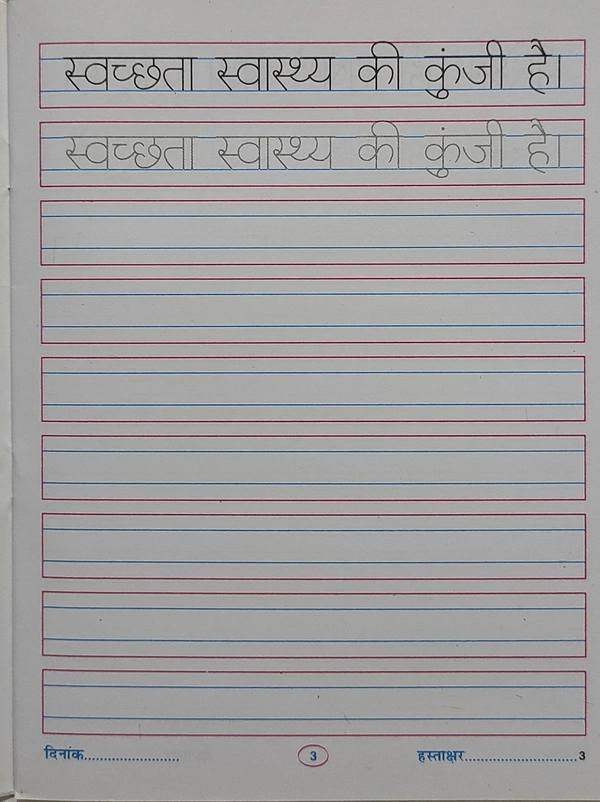 स्वच्छता स्वास्थ्य की कुंजी है।
स्वच्छता स्वास्थ्य की कुंजी है।
दिनांक........................ 3 हस्ताक्षर............................3